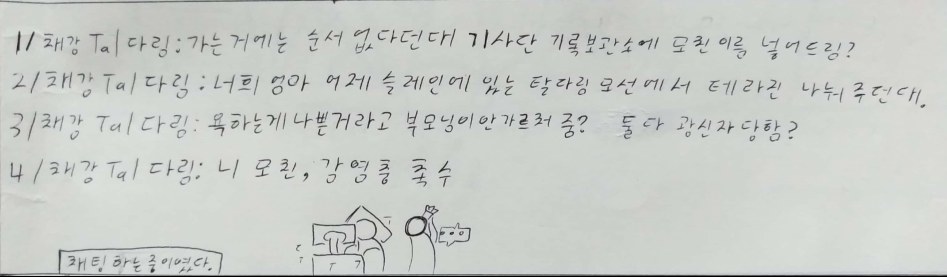 1/ 채강 Ta/다림: 가는 거에는 순서 없다던대 기사단 기록보관소에 모친 이름 넣어드림?
2/ 채강 Ta/다림: 너희 엄마 어제 슬레인에 있는 탈라림 모선에서 테라진 나눠 주던대.
3/ 채강 Ta/다림: 욕하는게 나쁜거라고 부모님이 안가르쳐 줌? 둘다 광신자 당함?
4/ 채강 Ta/다림: 니 모친, 감염충 촉수
채팅 하는중이였다.